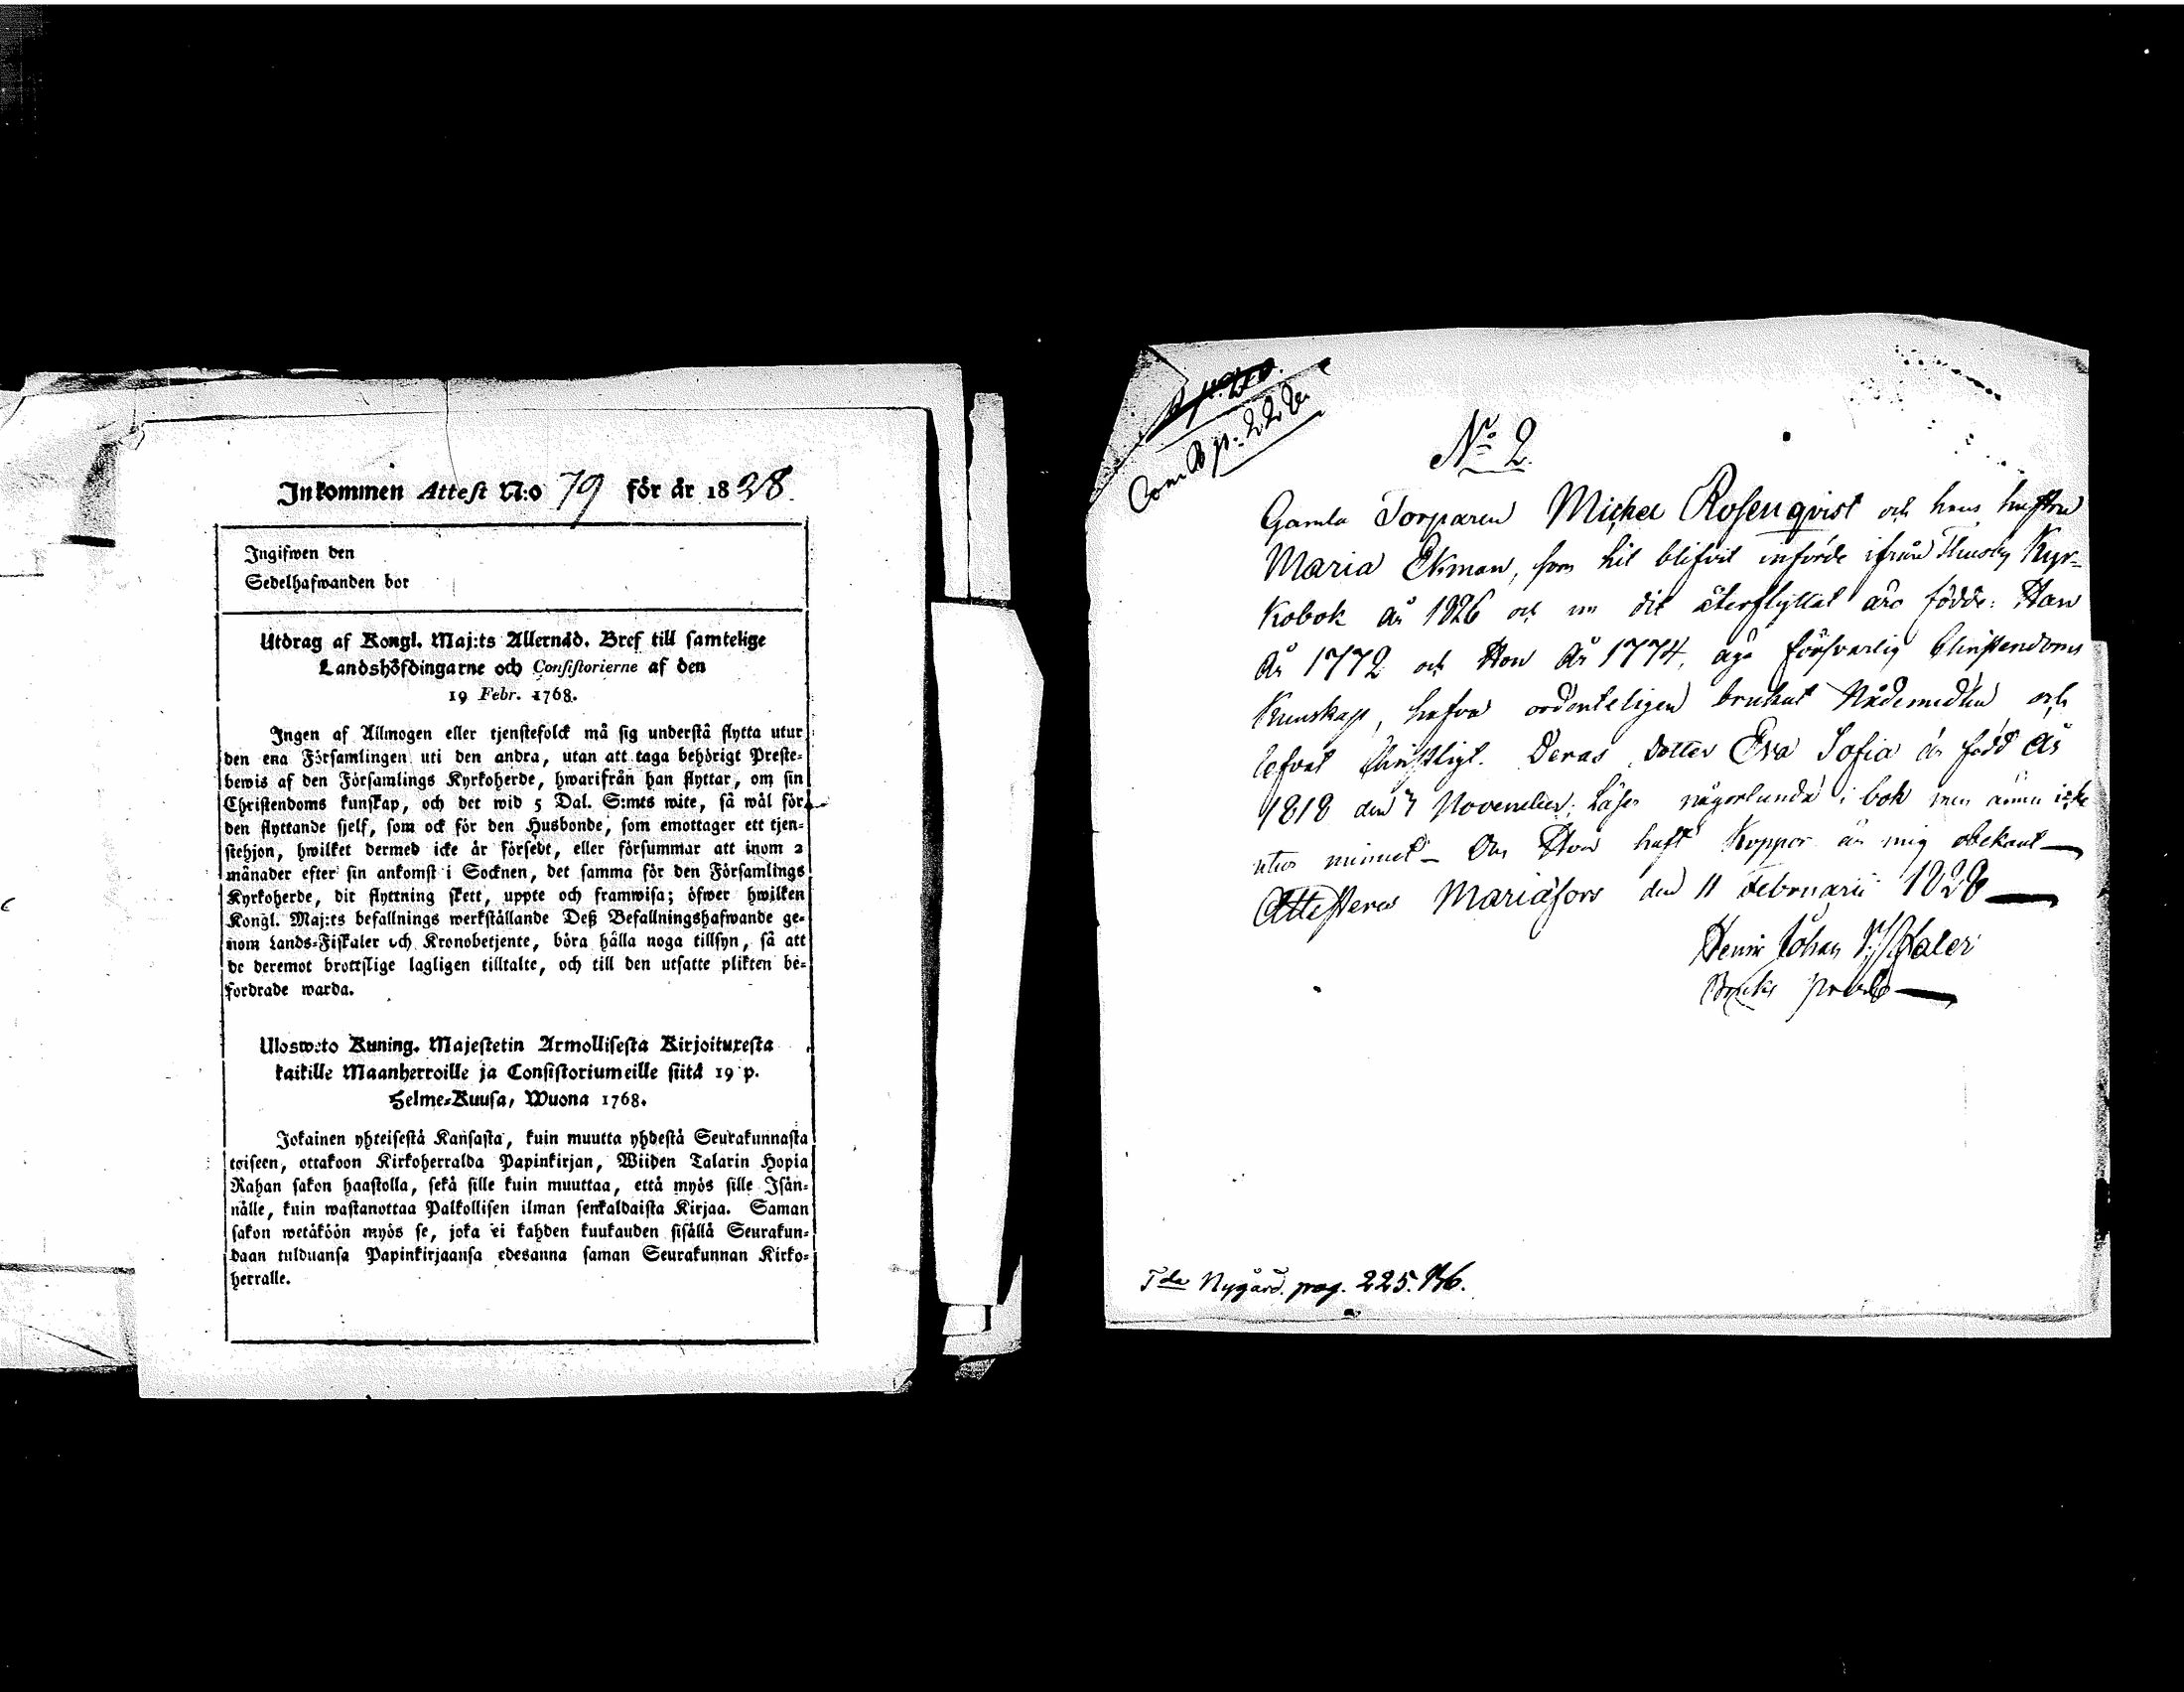 Inkommen Attest N:o 79 för år 1828.
Ingifwen den
Sedelhafwanden bor
Utdrag af Kongl. Maj:ts Allernåd. Bref till samtelige
Landshöfdingarne och Consistorierne af den
19 Febr. 1768.
Ingen af Allmogen eller tjenstefolck må sig understå flytta utur
den ena Församlingen uti den andra, utan att taga behörigt Preste-
bewis af den Församlings Kyrkoherde, hwarifrån han flyttar, om sin
Christendoms kunskap, och det wid 5 Dal. S:mts wite, så wål för
den flyttande sjelf, som ock för den Husbonde, som emottager ett tjen-
stehjon, hwilket dermed icke år försedt, eller försummar att inom 2
månader efter sin ankomst i Socknen, det samma för den Församlings
Kyrkoherde, dit flyttning skett, uppte och framwisa; öfwer hwilken
Kongl. Maj:ts befallnings werkställande Deß Befallningshafwande ge-
nom Lands-Fiskaler och Kronobetjente, böra hålla noga tillsyn, så att
de deremot brottslige lagligen tilltalte, och till den utsatte plikten be-
fordrade warda.
Ulosweto Kuning. Majestetin Armollisesta Kirjoituxesta
kaikille Maanherroille ja Consistoriumeille siitä 19 p.
Helme-Kuusa, Wuona 1768.
Jokainen yhteisestå Kansasta, kuin muutta yhdestå Seurakunnasta
toiseen, ottakoon Kirkoherralda Papinkirjan, Wiiden Talarin Hopia
Rahan sakon haastolla, sekå sille kuin muuttaa, ettå myös sille Isån-
nålle, kuin wastanottaa Palkollisen ilman senkaldaista Kirjaa. Saman
sakon wetåköön myös se, joka ei kahden kuukauden sisållå Seurakun-
daan tulduansa Papinkirjaansa edesanna saman Seurakunnan Kirko-
herralle.
Com B p. 228
No 2.
Gamla Torparen Michel Rosenqvist och hans hustru
Maria Ekman, som hit blifvit införde ifrån Thusby Kyr-
kobok år 1826 och nu dit återflyttat äro födde: Han
År 1772 och Hon År 1774, äga försvarlig Christendoms
Kunskap, hafva ordenteligen brukat Nådemedlen och
lefvat Christligt. Deras dotter Eva Sofia är född År
1818 den 7 November; Läser någorlunda i bok men ännu icke
utur minnet – Om Hon haft Koppor är mig obekant —
Attesteras Mariæfors den 11 Februarii 1828 —
Johan
Bruks
Tda Nygård. pag. 225.